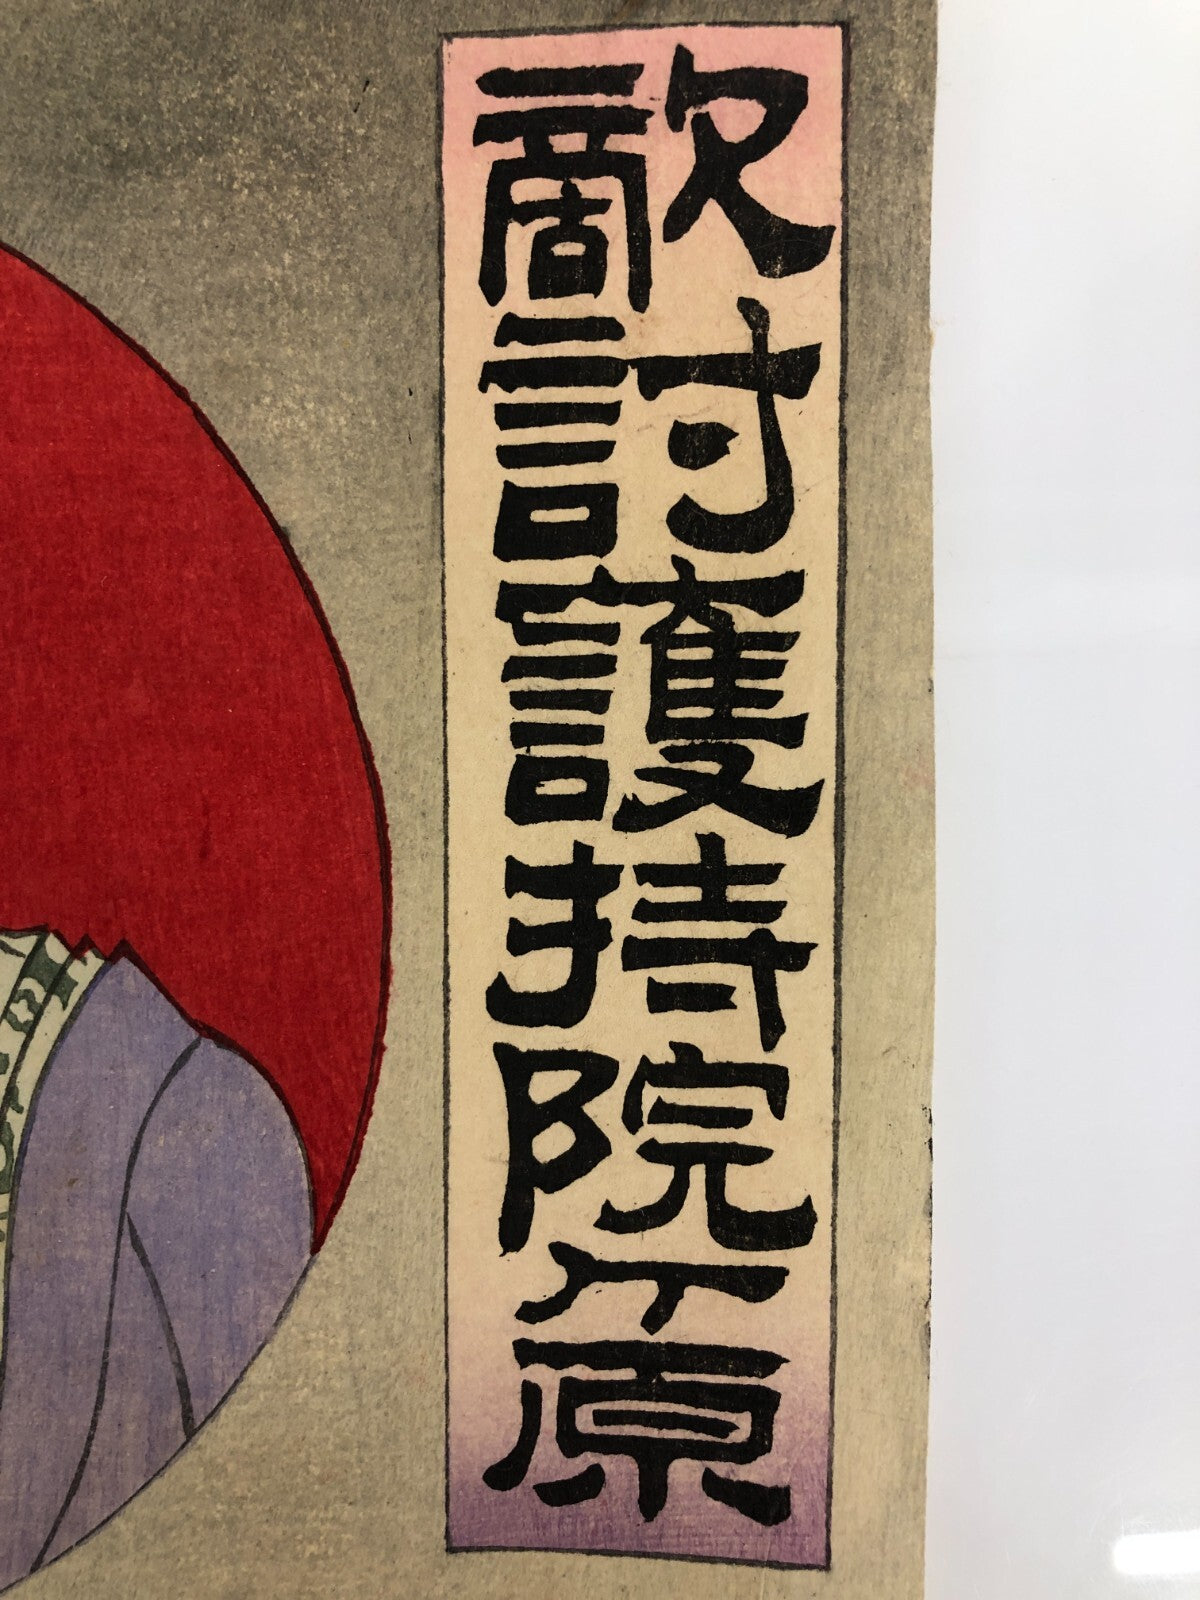 敵討護持院ケ原